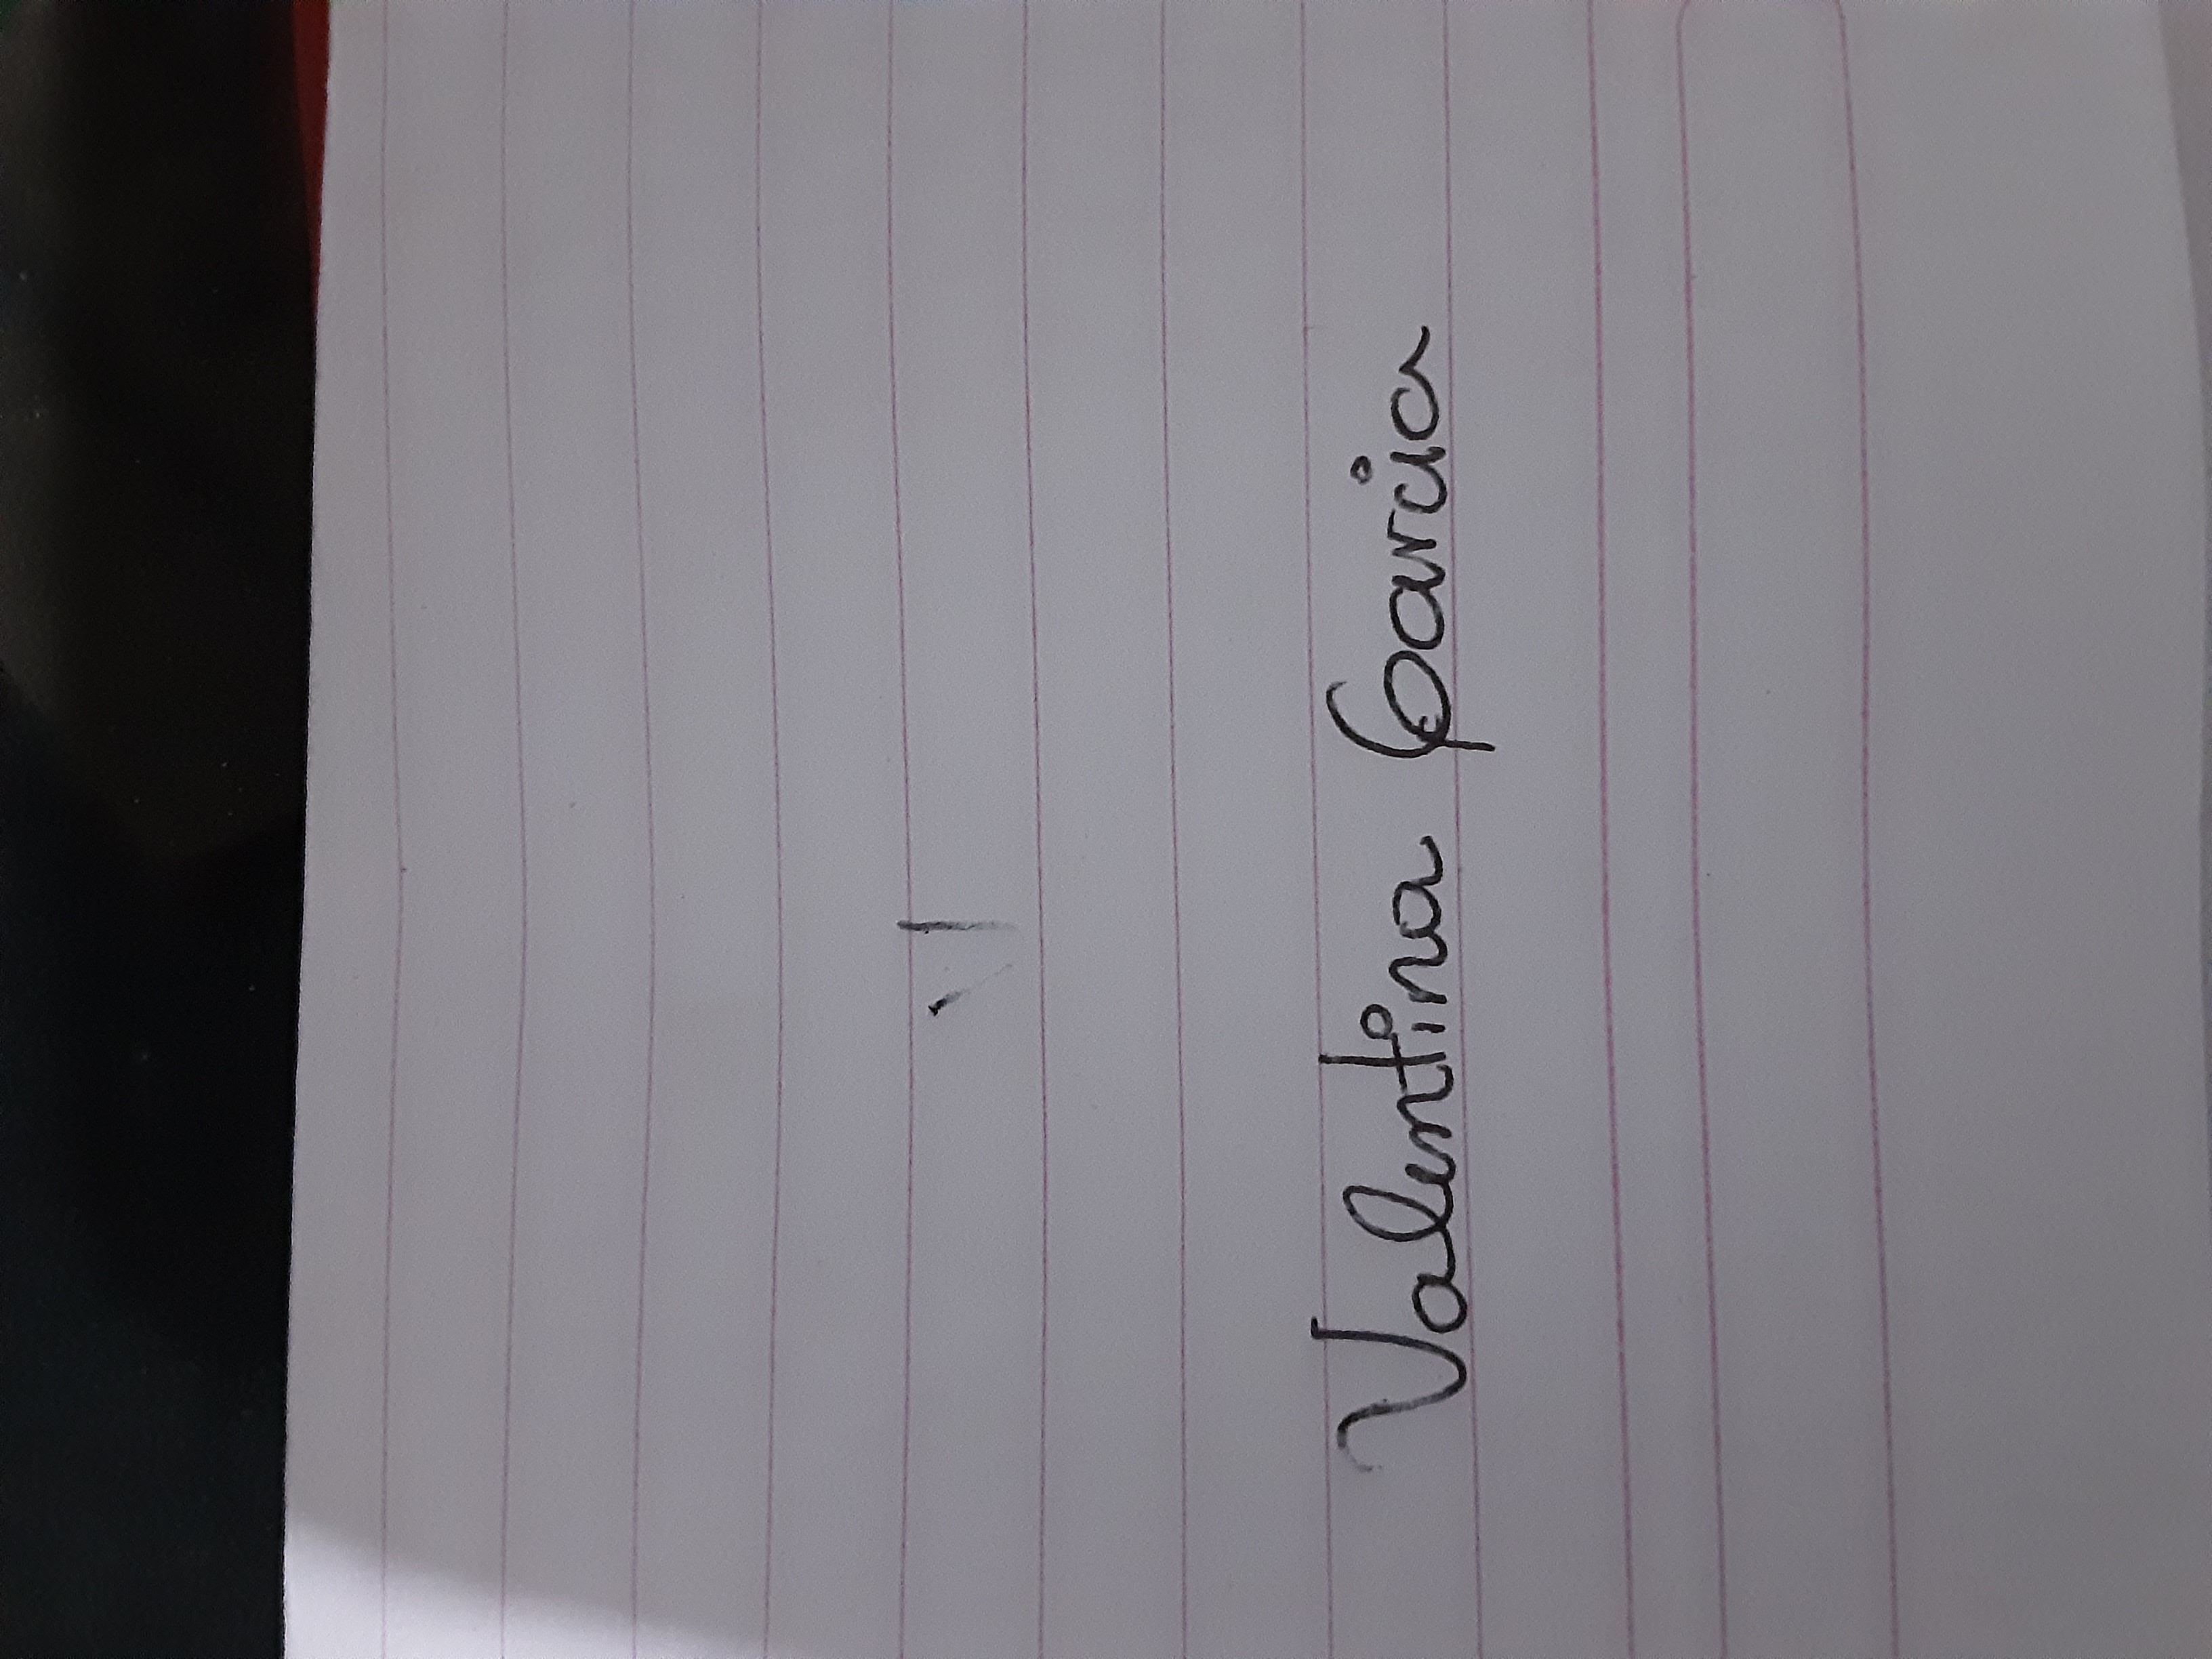 Valentina Garcia